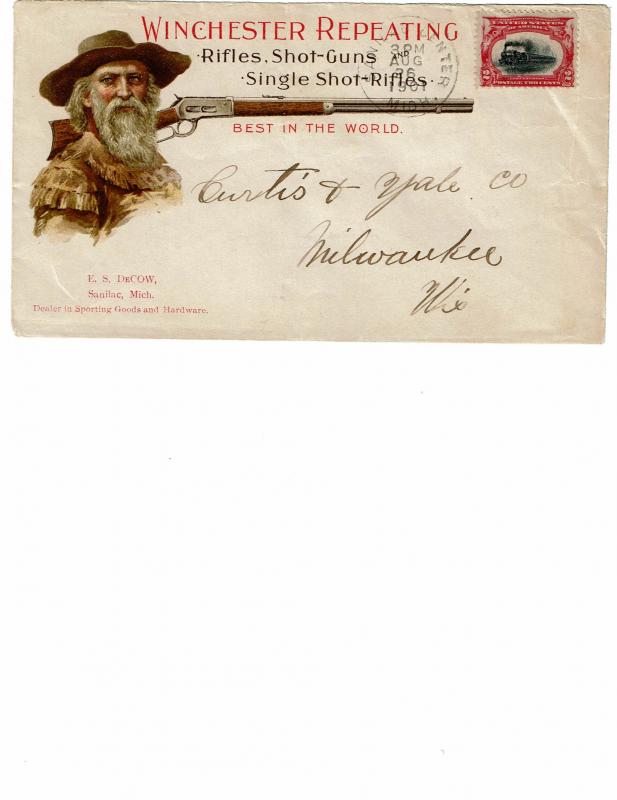 WINCHESTER REPEATING
·Rifles, Shot-Guns AND
·Single Shot-Rifles·
BEST IN THE WORLD.
3 PM
AUG
26
1901
MICH.
UNITED STATES
OF AMERICA
2 2
POSTAGE TWO CENTS
Curtis & Yale Co
Milwaukee
Wis
E. S. DECOW,
Sanilac, Mich.
Dealer in Sporting Goods and Hardware.